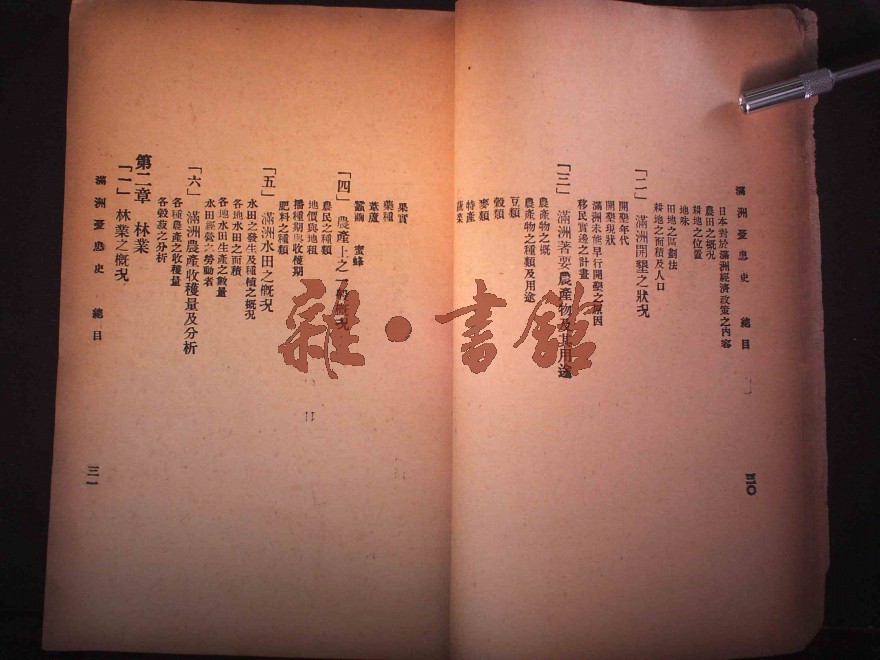 滿洲憂患史　總目
三〇
日本對於滿洲經濟政策之內容
農田之槪况
耕地之位置
地味
田地之區劃法
耕地之面積及人口
「二」滿洲開墾之狀况
開墾年代
開墾現狀
滿洲未能早行開墾之原因
移民實邊之計畫
「三」滿洲著要農產物及其用途
農產物之概
農產物之種類及用途
豆類
穀類
麥類
特產
蔬菜
果實
藥種
葦蘆
蠶繭　蜜蜂
「四」農產上之一般槪况
農民之種類
地價與地租
播種期與收穫期
肥料之種類
「五」滿洲水田之槪况
水田之發生及種植之槪况
各地水田之面積
各地水田生產之數量
水田經營之勞動者
「六」滿洲農產收穫量及分析
各種農產之收穫量
各穀菽之分析
第二章　林業
「一」林業之槪况
滿洲憂患史　總目
三一
雜·書館